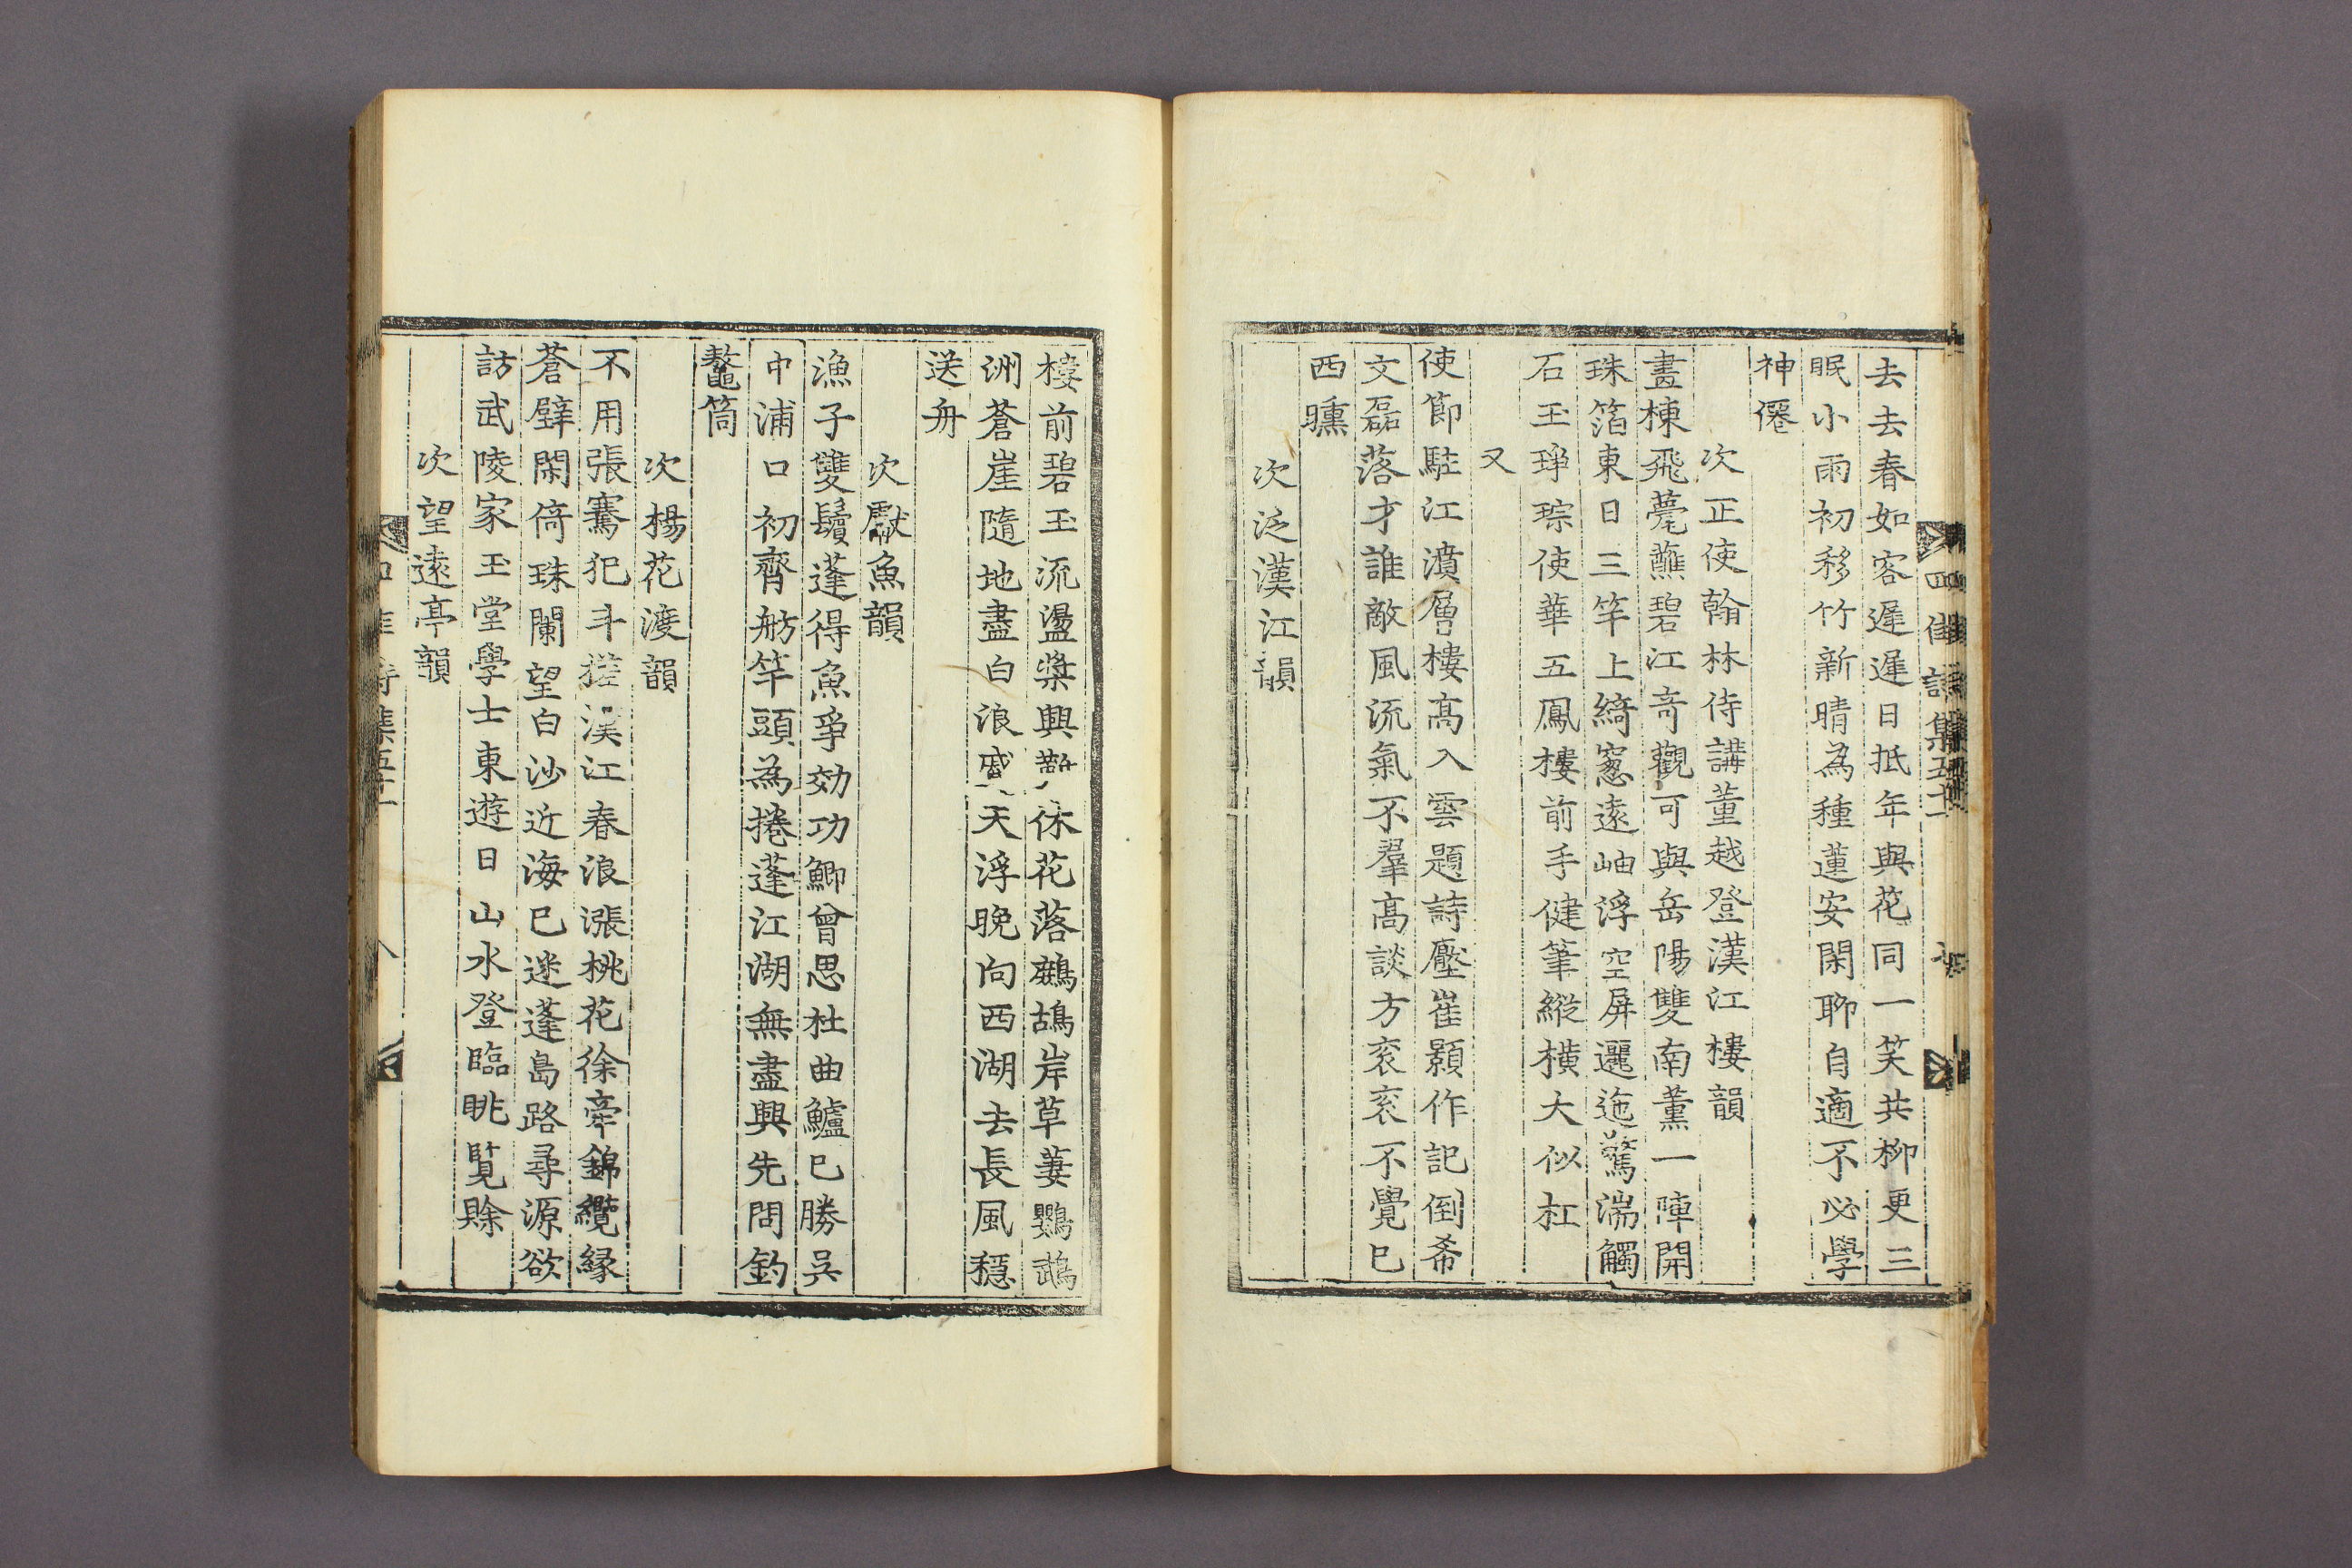 四佳詩集五十一
去去春如客遲遲日抵年與花同一笑共柳更三
眠小雨初移竹新晴為種蓮安閑聊自適不必學
神僊
次正使翰林侍講董越登漢江樓韻
畫棟飛甍蘸碧江奇觀可與岳陽雙南薰一陣開
珠箔東日三竿上綺窻遠岫浮空屏邐迤驚湍觸
石玉琤琮使華五鳳樓前手健筆縱橫大似杠
又
使節駐江濆層樓高入雲題詩壓崔顥作記倒希
文磊落才誰敵風流氣不羣高談方袞袞不覺已
西曛
次泛漢江韻
樓前碧玉流盪槳興休花落鷓鴣岸草萋鸚鵡
洲蒼崖隨地盡白浪天浮晚向西湖去長風穩
送舟
次獻魚韻
漁子雙鬢蓬得魚爭効功鯽曾思杜曲鱸已勝吳
中浦口初齊舫竿頭為捲蓬江湖無盡興先問釣
鼇筒
次楊花渡韻
不用張騫犯斗槎漢江春浪漲桃花徐牽錦纜緣
蒼壁閑倚珠闌望白沙近海已迷蓬島路尋源欲
訪武陵家玉堂學士東遊日山水登臨眺覧賒
次望遠亭韻
集五十一